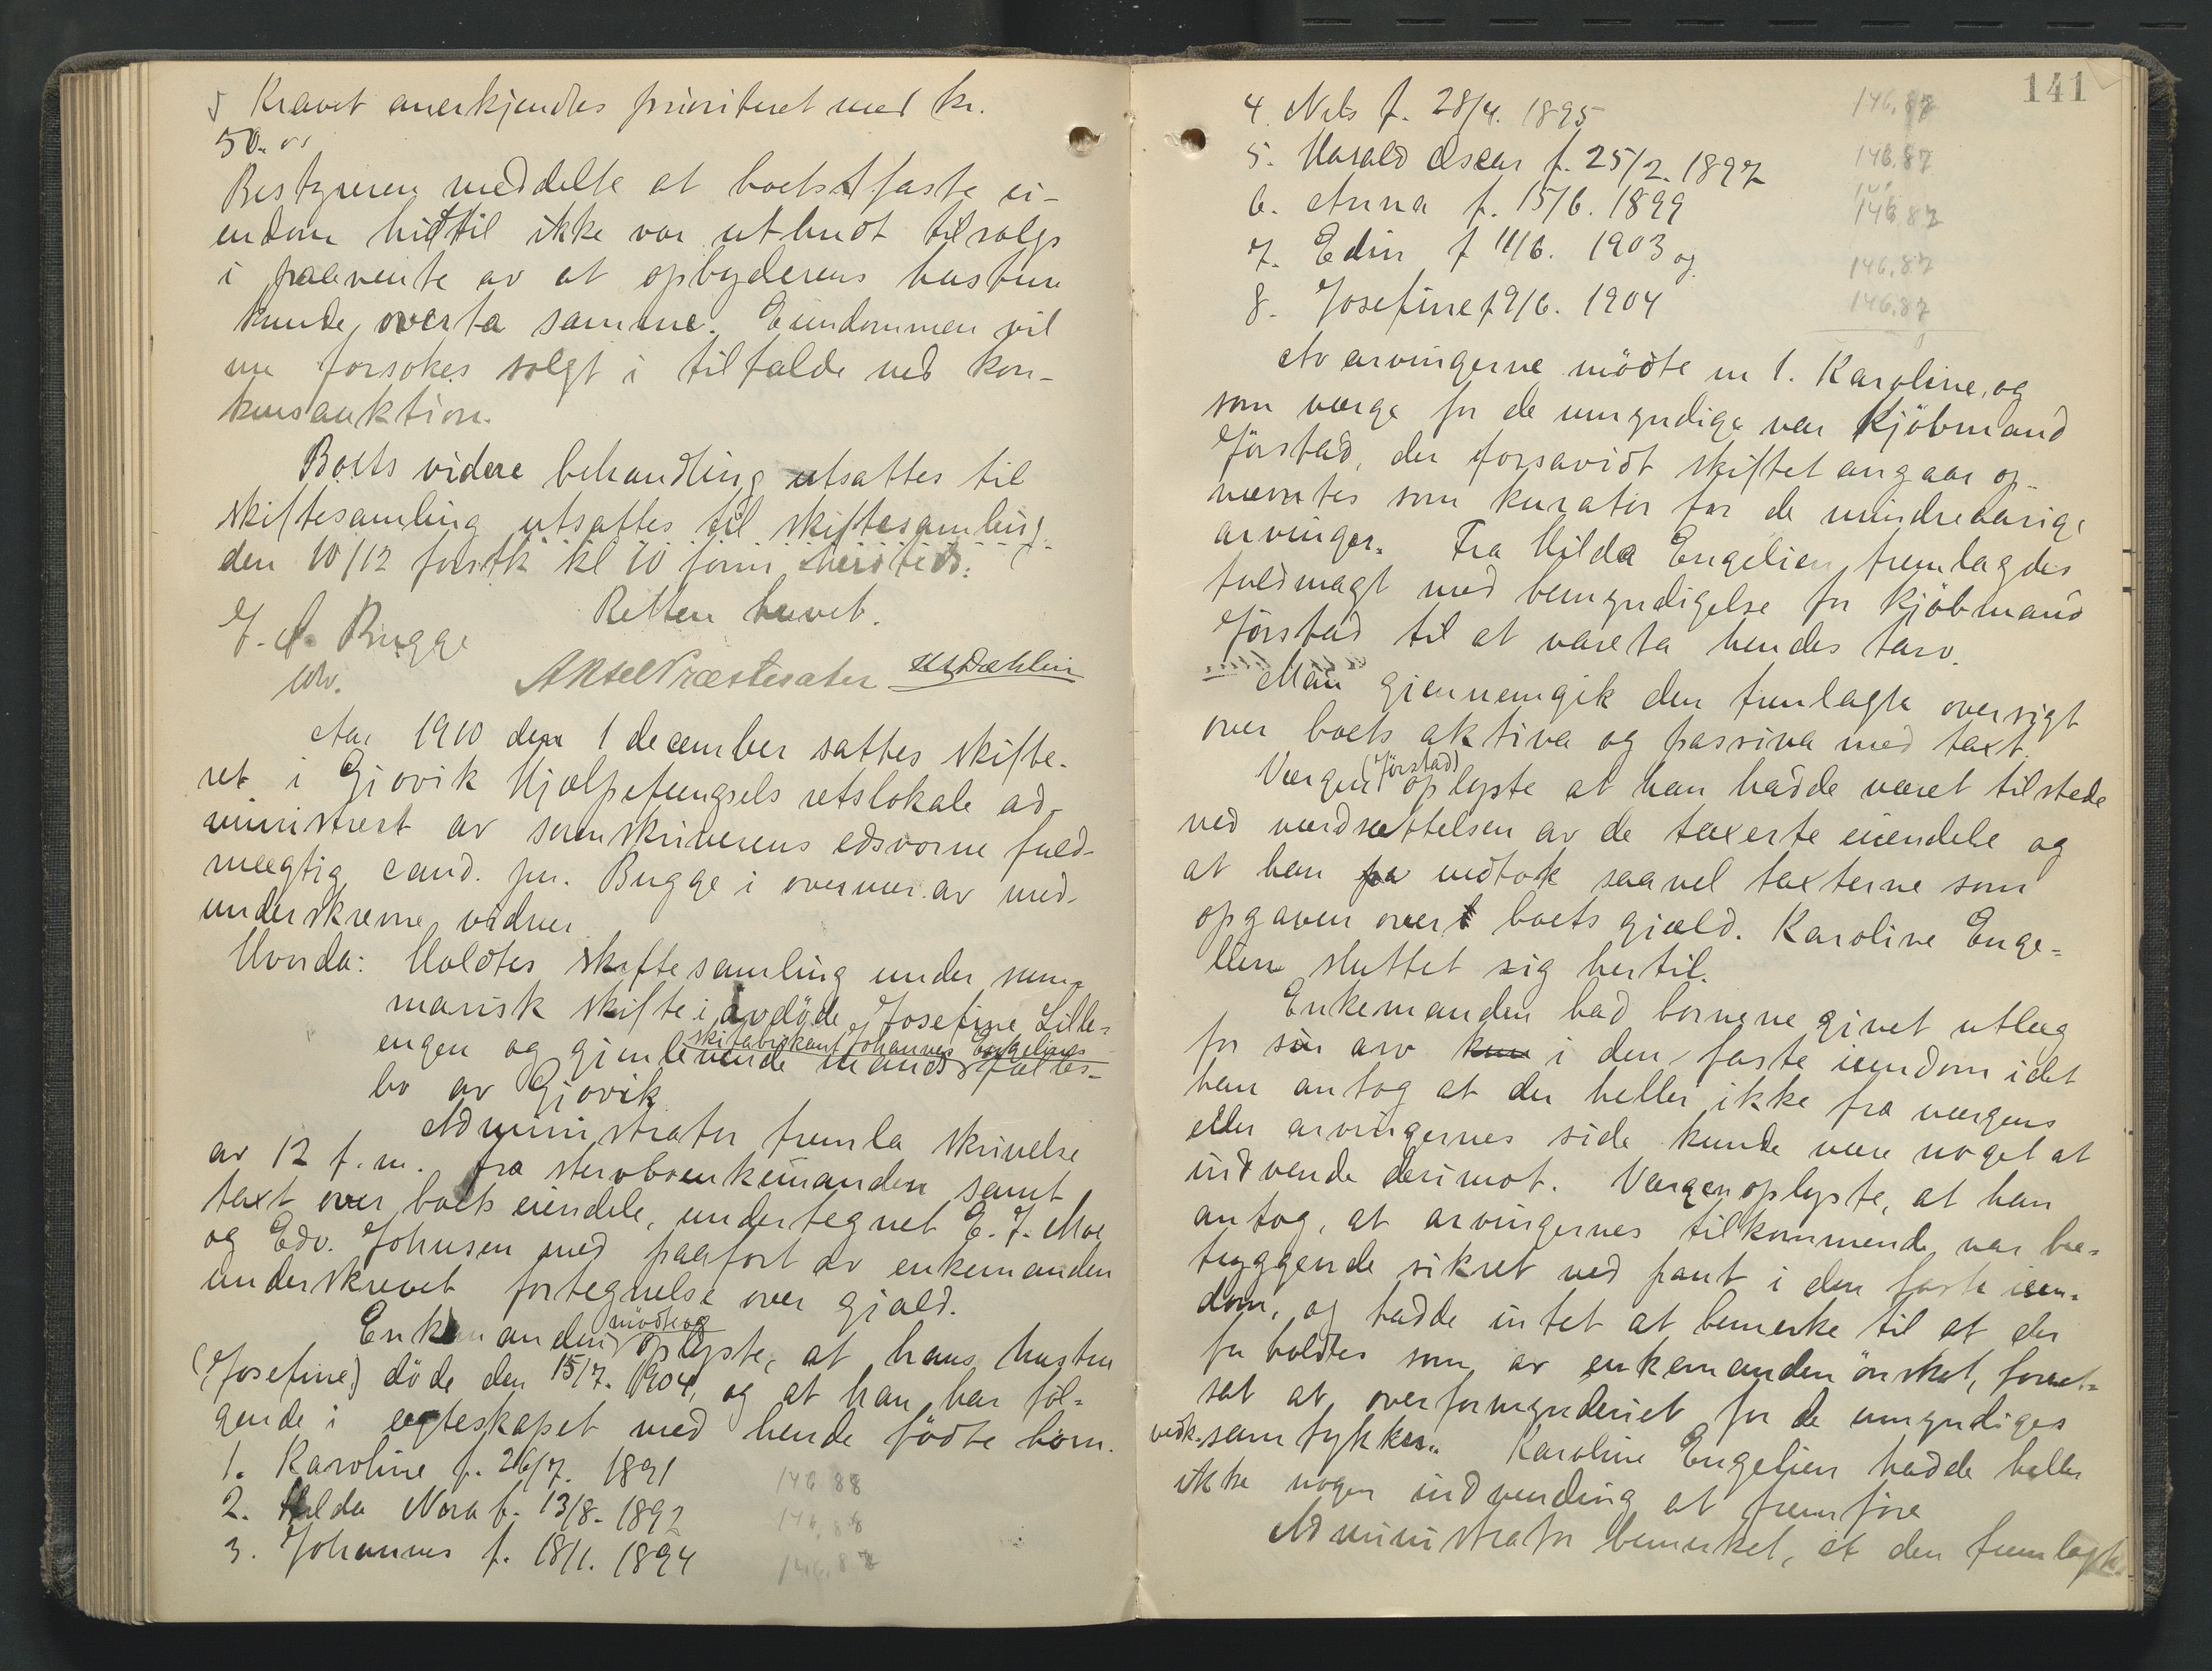 5 Kravet anerkjendtes prioritert med kr.
50.00
Bestyreren meddelte at boets faste ei-
endom hittil ikke var utbudt tilsalgs
i paavente av at opbyderens hustru
kunde overta samme. Eiendommen vil
nu forsøkes solgt i tilfælde ved kon-
kursauktion.
Boets videre behandling utsattes til
skiftesamling utsattes til skiftesamling
den 10/12 førstk kl 10 form hersteds.
Retten hævet.
J. A. Bugge
ktr.
Aksel Præstesater
Aar 1910 den 1 december sattes skifte-
ret i Gjøvik Hjælpefængsels retslokale ad-
ministrert av sorenskriverens edsvorne fuld-
mægtig cand. jur. Bugge i overvær av med-
underskrevne vidner
Hvorda: Holdtes skiftesamling under sum-
marisk skifte i avdöde Josefine Lille-
skifabrikant Johannes Engeliens
engen og gjenlevende mands fælles-
bo av Gjøvik
Administrator fremla skrivelse
av 12 f.m. fra stervboenkemanden samt
taxt over boets eiendele, undertegnet E. J. Moe
og Edv. Johnsen med paaført av enkemanden
underskrevet fortegnelse over gjæld.
mødte og
Enkemanden oplyste, at hans hustru
(Josefine) döde den 15/7. 1904, og at han har föl-
gende i egteskapet med hende födte børn.
1. Karoline f. 26/7. 1891 146 88
2. Hilda Nora f. 13/8. 1892 146,88
3. Johannes f. 18/1. 1894 146,87
141
4. Nils f. 28/4. 1895 146,87
5. Harald Oscar f. 25/2. 1897 146,87
6. Anna f. 15/6. 1899 146,87
7. Edin f 11/6. 1903 og 146,87
8. Josefine f 9/6. 1904 146,87
Av arvingerne mödte nr 1. Karoline, og
som værge for de umyndige var Kjöbmand
Jörstad, der forsavidt skiftet angaar op-
nævntes som kurator for de mindreaarige
arvinger. Fra Hilda Engelien fremlagdes
fuldmagt med bemyndigelse for Kjöbmand
Jörstad til at vareta hendes tarv.
Man gjennemgik den fremlagte oversigt
over boets aktiva og passiva med taxt.
(Jörstad)
Værgen oplyste at han hadde været tilstede
ved værdsættelsen av de taxerte eiendele og
at han vedtok saavel taxterne som
opgaven over boets gjæld. Karoline Enge-
lien sluttet sig hertil.
Enkemanden bad børnene givet utlæg
for sin arv kun i den faste eiendom idet
han antog at der heller ikke fra værgens
eller arvingernes side kunde være noget at
indvende derimot. Værgen oplyste, at han
antog, at arvingernes tilkommende var be-
tryggende sikret ved pant i den faste eien-
dom, og hadde intet at bemerke til at der
forholdtes som av enkemanden önsket, forut-
sat at overformynderiet for de umyndiges
vedk. samtykker. Karoline Engelien hadde heller
ikke nogen indvending at fremföre
Administrator bemerket, at den fremlagte